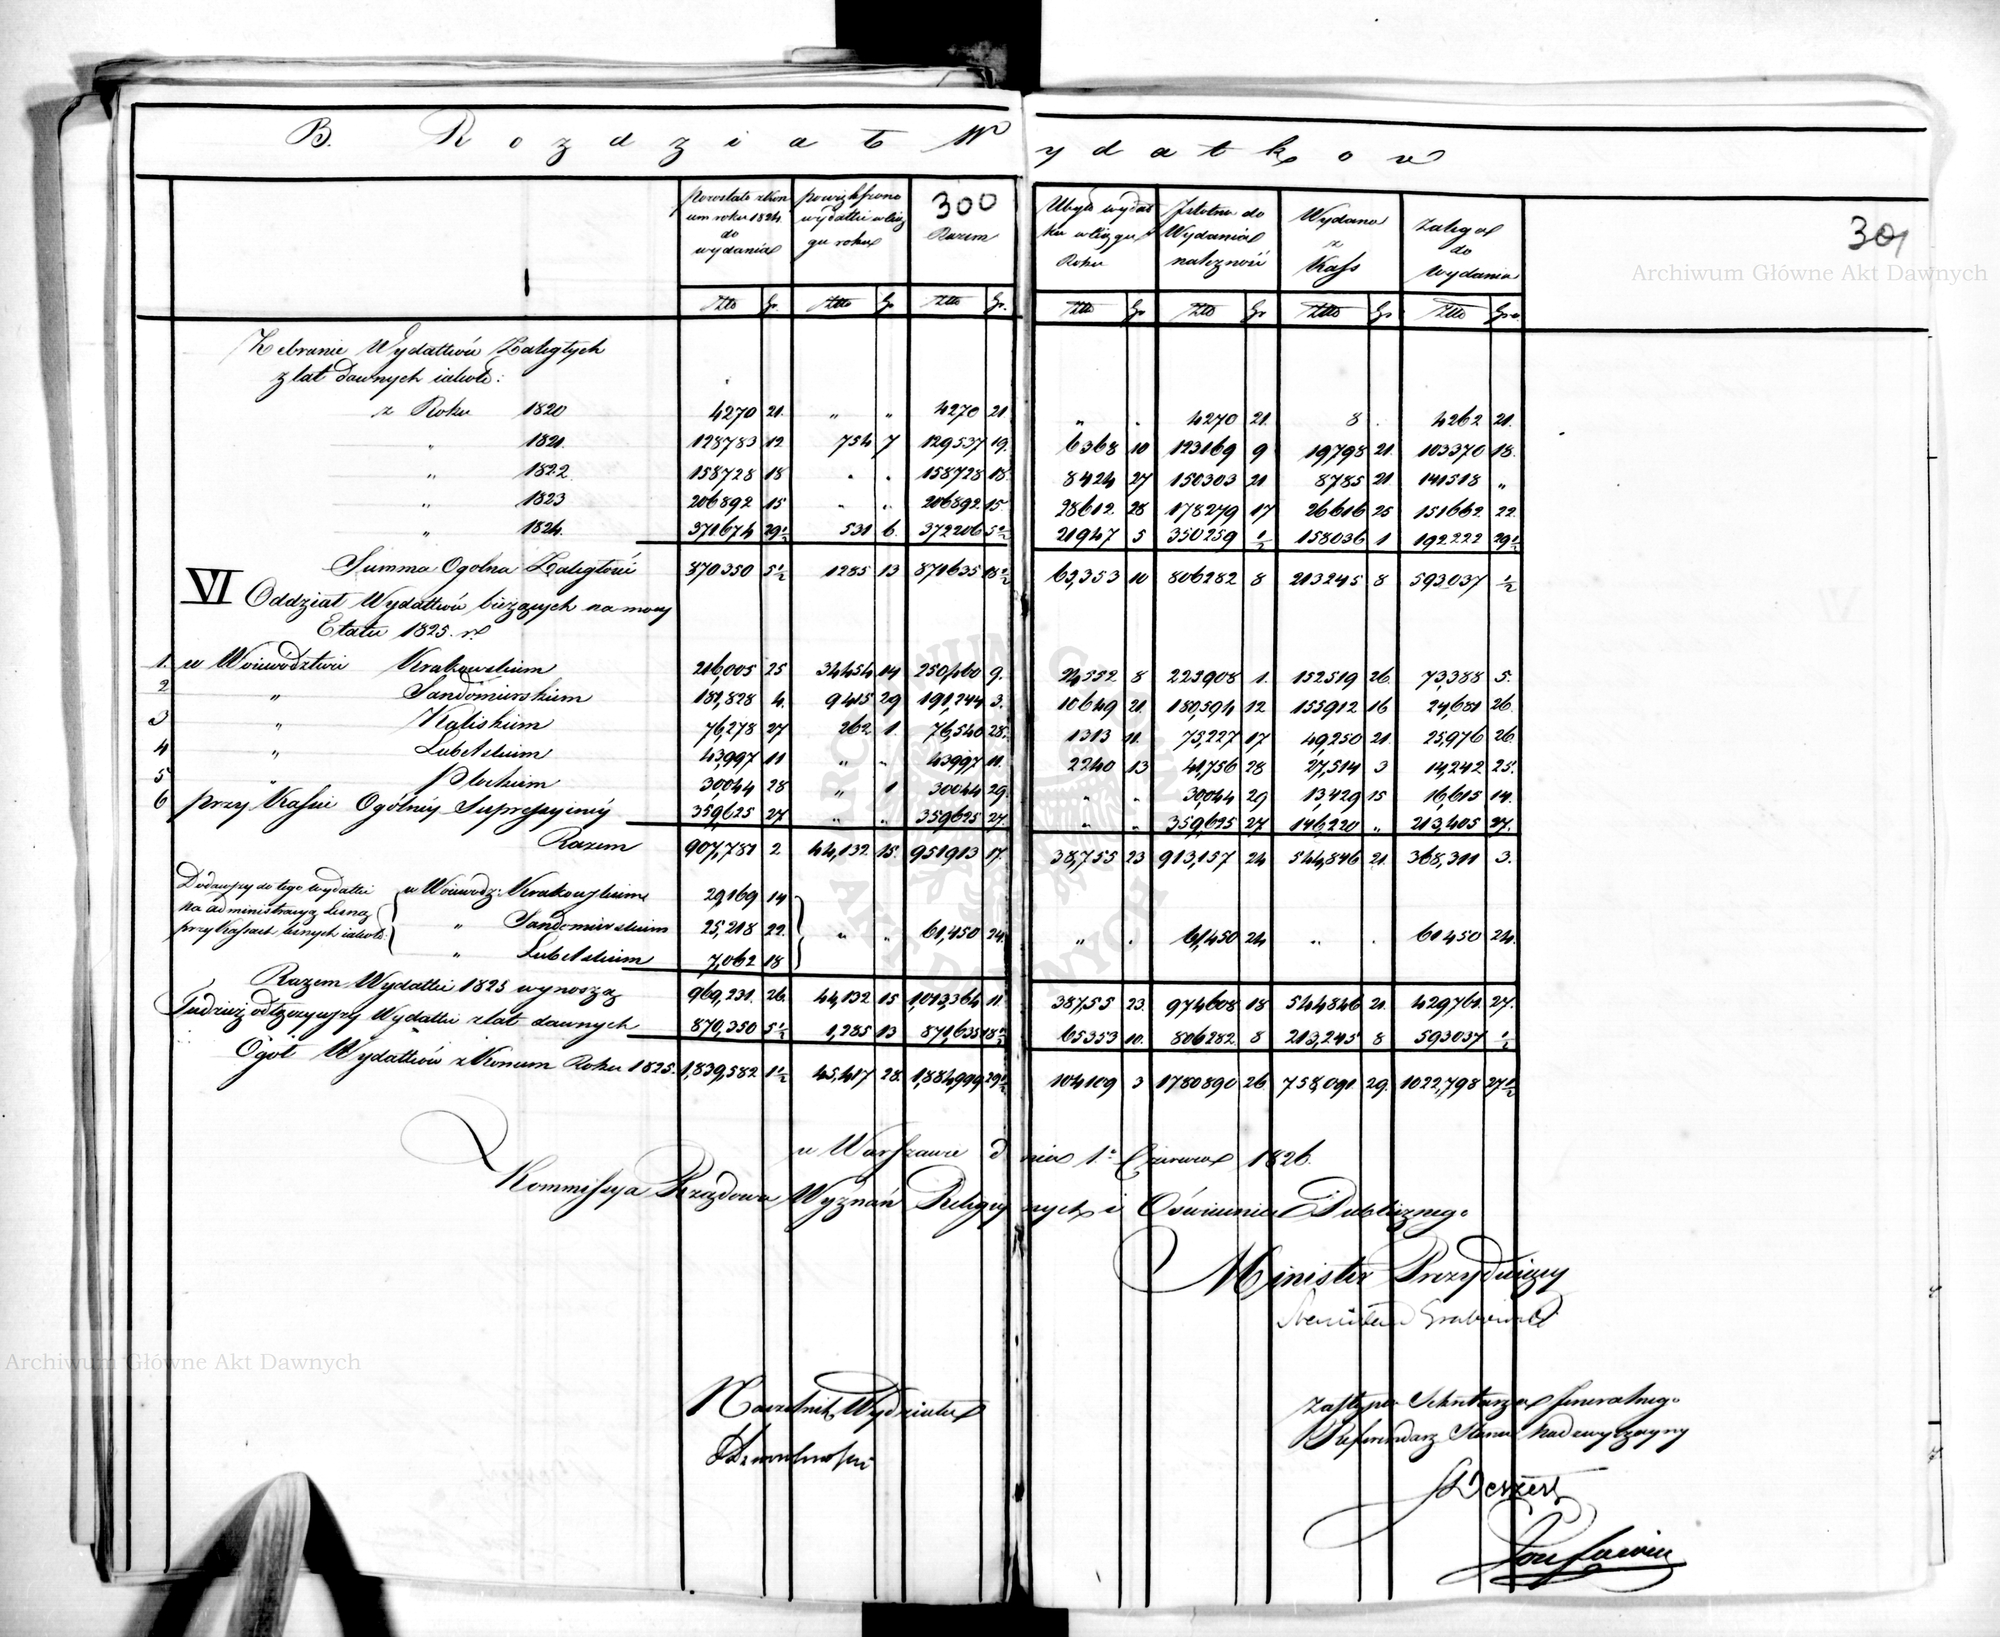 B. Rozdział Wydatkow
300
301
Pozostało z koncem roku 1824 do wydania | powiększono wydatki w ciągu roku | Razem | Ubyło wydatku w ciągu Roku | Istotna do Wydania należność | Wydano z Kass | Zalega do wydania
Złto | Gr. | Złto | Gr | Złto | Gr. | Złto | Gr | Złto | Gr | Złto | Gr | Złto | Gro
Zebranie Wydatków Zaległych
z lat Dawnych iakoto:
z Roku 1820 | 4270 | 21. | " | " | 4270 | 21 | " | . | 4270 | 21. | 8 | . | 4262 | 21.
" 1821. | 128783 | 12 | 754 | 7 | 129537 | 19. | 6368 | 10 | 123169 | 9 | 19798 | 21. | 103370 | 18.
" 1822 | 158728 | 18 | " | " | 158728 | 18. | 8424 | 27 | 150303 | 21 | 8785 | 21. | 141518 | "
" 1823 | 206892 | 15 | " | " | 206892 | 15. | 28612 | 28 | 178279 | 17 | 26616 | 25 | 151662 | 22.
" 1824. | 371674 | 29½ | 531 | 6. | 372206 | 5½ | 21947 | 5 | 350259 | ½ | 158036 | 1 | 192222 | 29½
Summa Ogolna Zaległości | 870350 | 5½ | 1285 | 13 | 871635 | 18½ | 65,353 | 10 | 806282 | 8 | 213245 | 8 | 593037 | ½
VI Oddział Wydatków bieżących na mocy
Etatu 1825. r.
1. w Woiewodztwie Krakowskiem | 216,005 | 25 | 34454 | 14 | 250,460 | 9. | 24552 | 8 | 225908 | 1. | 152519 | 26. | 73,388 | 5.
2 " Sandomirskiem | 181,828 | 4. | 9415 | 29 | 191,244 | 3. | 10649 | 21. | 180,594 | 12 | 155912 | 16 | 24,681 | 26.
3 " Kaliskiem | 76,278 | 27 | 262 | 1. | 76,540 | 28. | 1313 | 11. | 75,227 | 17 | 49,250 | 21. | 25,976 | 26.
4 " Lubelskiem | 43,997 | 11 | " | " | 43997 | 11. | 2240 | 13 | 41,756 | 28 | 27,514 | 3 | 14,242 | 25.
5 " Płockiem | 30,044 | 28 | " | 1 | 30044 | 29. | " | " | 30,044 | 29 | 13,429 | 15 | 16,615 | 14.
6 przy Kassie Ogólnéy Supressyinéy | 359,625 | 27 | " | " | 359625 | 27. | " | " | 359,625 | 27 | 146,220 | " | 213,405 | 27.
Razem | 907,781 | 2 | 44,132 | 15. | 951913 | 17. | 38,755 | 23 | 913,157 | 24 | 544,846 | 21. | 368,311 | 3.
Dodawszy do tego wydatki na administracyą Lesną przy Kassach lesnych iakoto:
w Woiewodz: Krakowskiem | 29,169 | 14
" Sandomirskiem | 25,218 | 22. | " | " | 61,450 | 24. | " | . | 61,450 | 24 | " | . | 61450 | 24.
" Lubelskiem | 7,062 | 18
Razem Wydatki 1825 wynoszą | 969,231. | 26. | 44,132 | 15 | 1,013,364 | 11 | 38,755 | 23. | 974608 | 18 | 544846 | 21. | 429761. | 27.
Tudzież odtrąciwszy Wydatki z lat dawnych | 870,350 | 5½ | 1,285 | 13 | 871,635 | 18½ | 65353 | 10. | 806282 | 8 | 213,245 | 8 | 593037 | ½
Ogół Wydatków z Koncem Roku 1825. | 1,839,582 | 1½ | 45,417 | 28. | 1,884,999 | 29½ | 104109 | 3 | 1780890 | 26 | 758,091. | 29. | 1022,798 | 27½
w Warszawie dnia 1.o Czerwca 1826.
Kommissya Rządowa Wyznań Religiynych i Oświecenia Publicznego
Minister Prezyduiący
Stanisław Grabowski
Naczelnik Wydziału
Zastępca Sekretarza Jeneralnego
Referendarz Stanu Nadzwyczayny
Archiwum Główne Akt Dawnych
Archiwum Główne Akt Dawnych